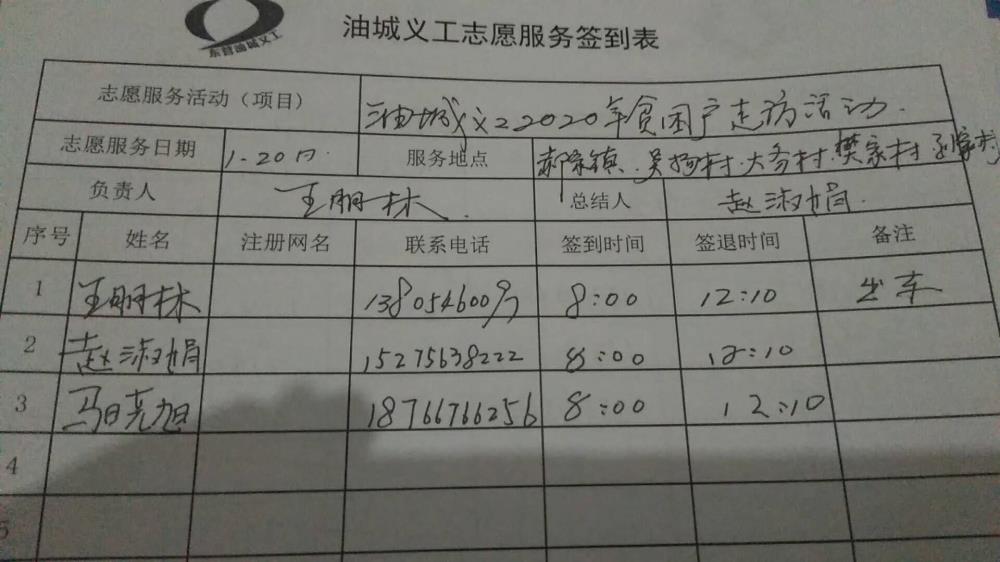 东营油城义工
油城义工志愿服务签到表
志愿服务活动（项目） 油城义工2020年贫困户走访活动.
志愿服务日期 1.20日. 服务地点 郝家镇. 吴 村. 大务村. 樊家村
负责人 王朋林. 总结人 赵淑娟.
序号 姓名 注册网名 联系电话 签到时间 签退时间 备注
1 王朋林 8:00 12:10 出车
2 赵淑娟 15275638222 8:00 12:10
3 马日尧旭 18766766256 8:00 12:10
4
5